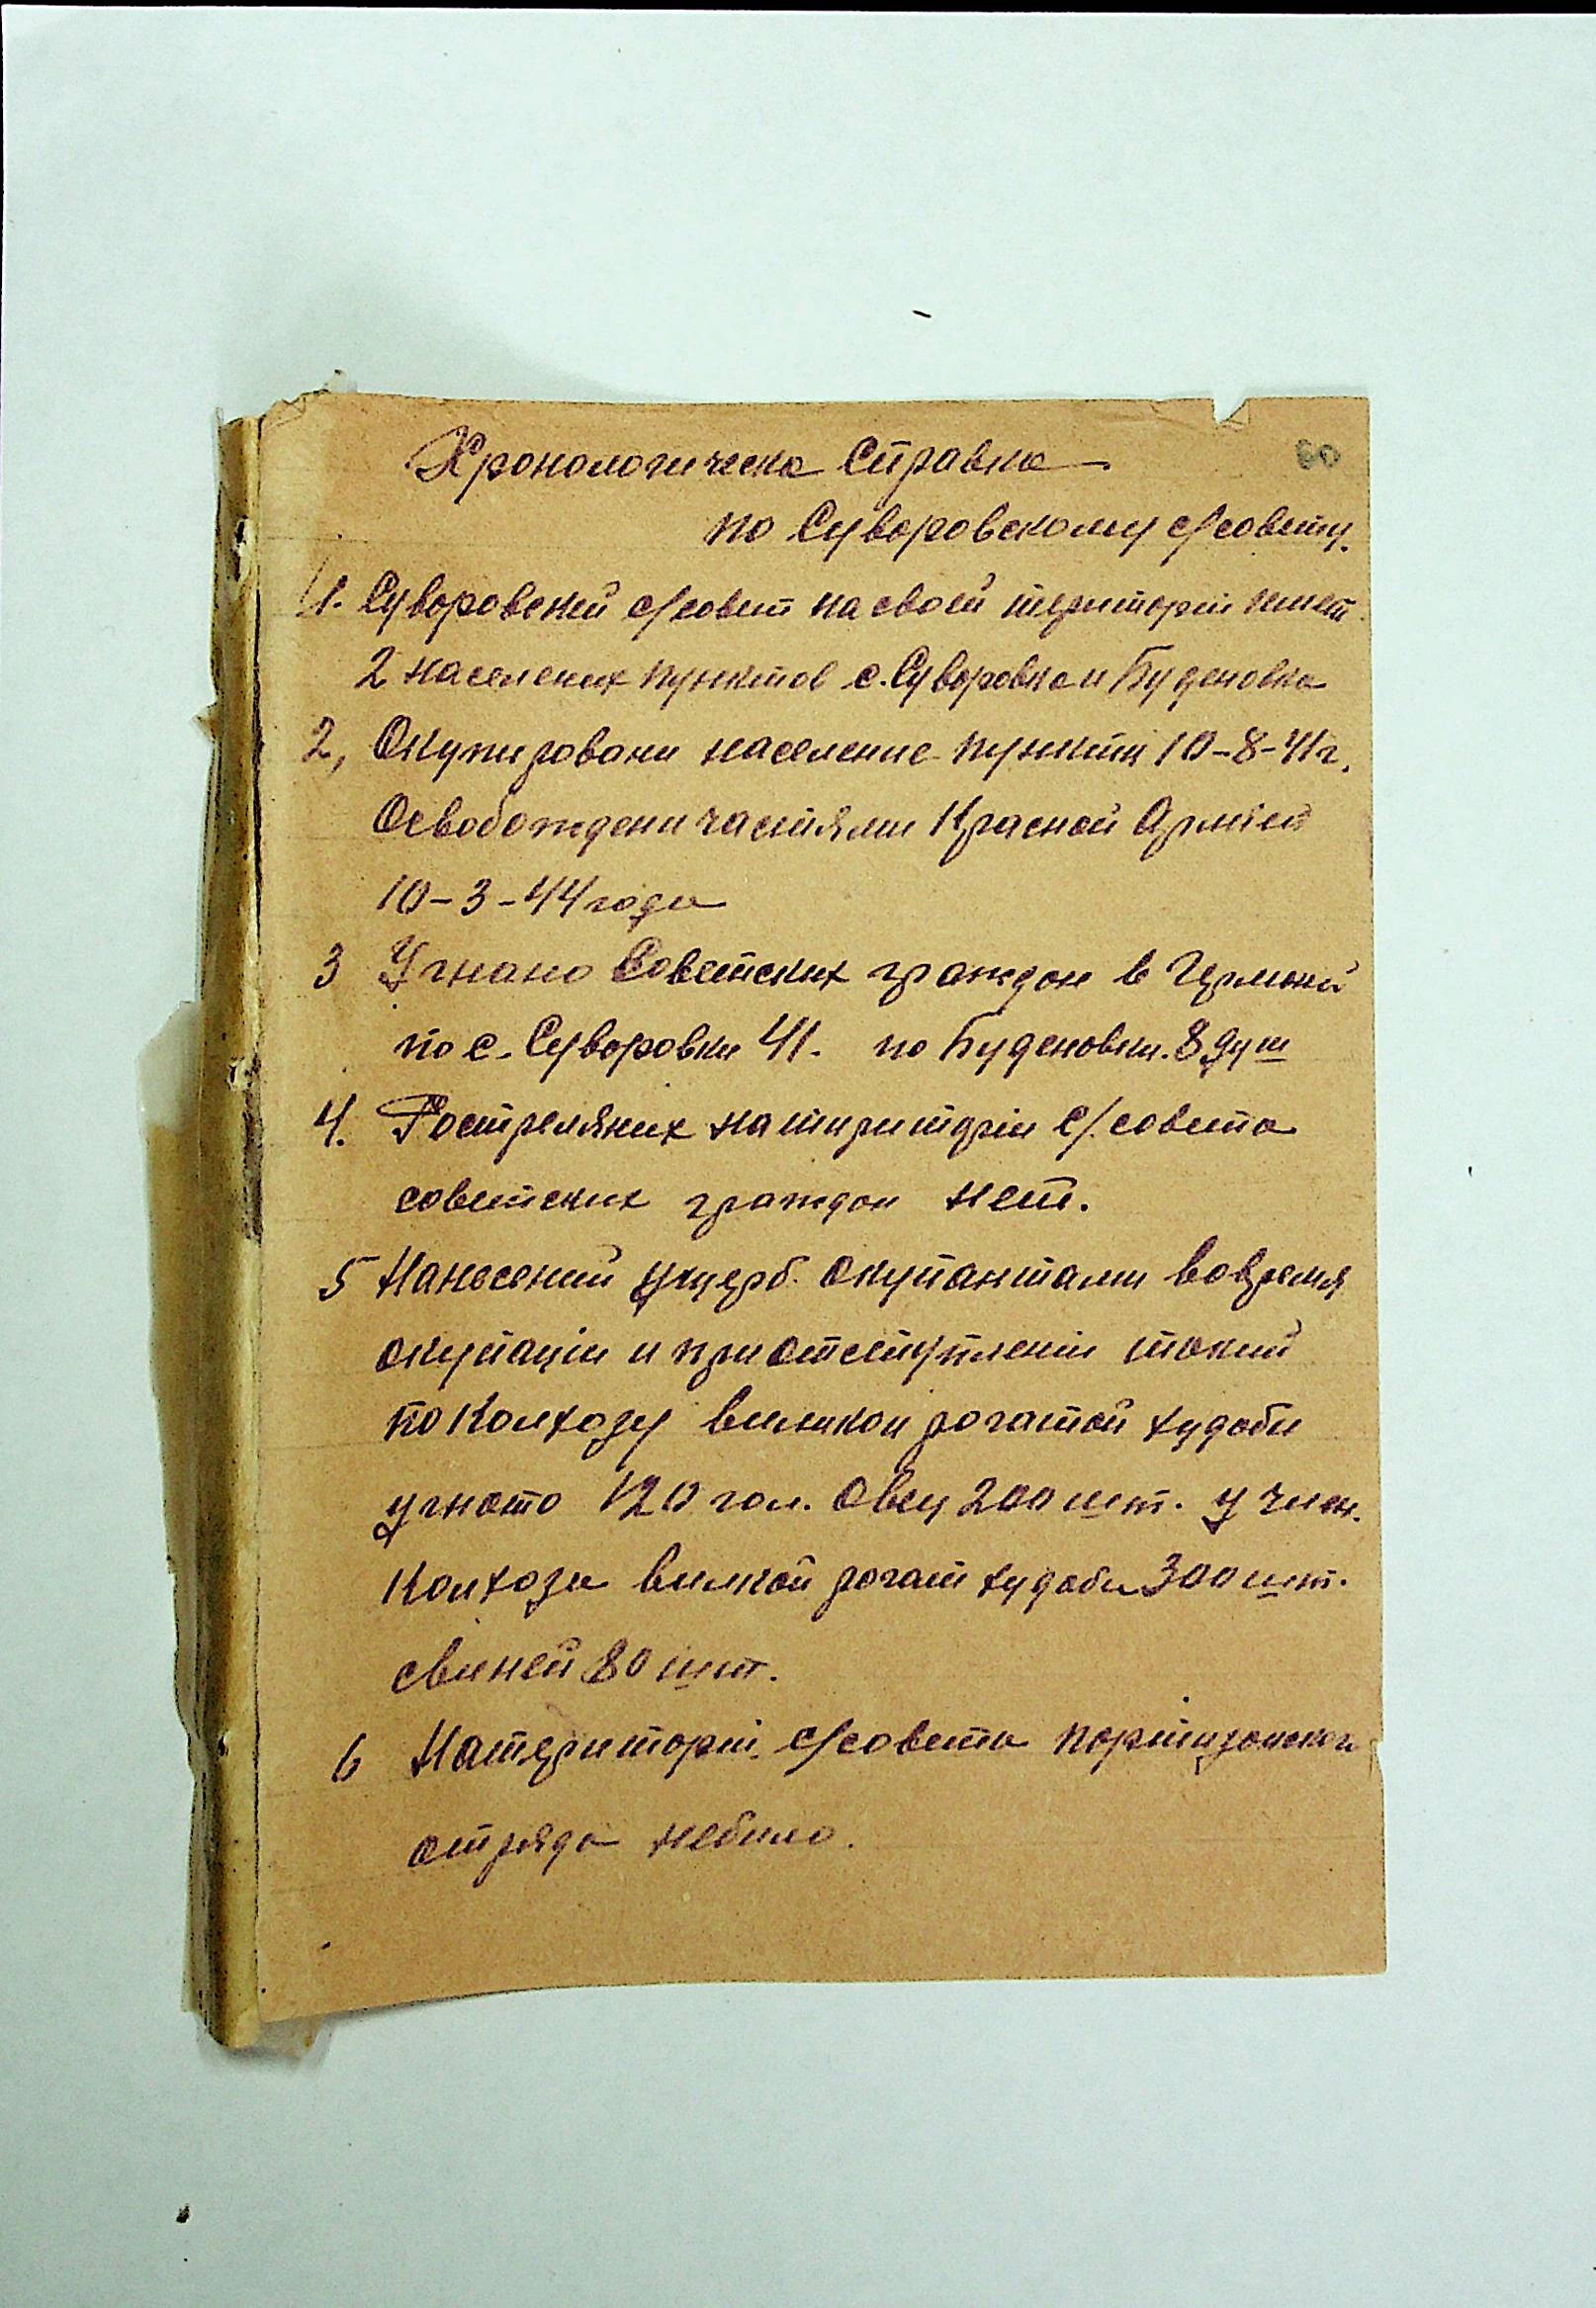 60
Хронологическа Справка
по Суворовскому с/совету.
1. Суворовский с/совет на своей територіи имет
2 населених пунктов с. Суворовка и Буденовка
2, Окупировани население пункти 10-8-41г.
Освобождени частями Красной Арміей
10-3-44 года
3 Угнано Советских граждан в Германй
по с. Суворовки 41. по Буденовки. 8 душ
4. Rостреляних на територіи с/совета
советских граждан нет.
5 Нанесений ущерб. окупантами вовремя
окупаціи и при отступленіи такий
по Колхозу великой рогатой худоби
угнато 120 гол. Овец 200 шт. у член.
Колхоза вилкой рогат худоби 300 шт.
свиней 80 шт.
6 На територіи с/совета партизанского
отряда небило.